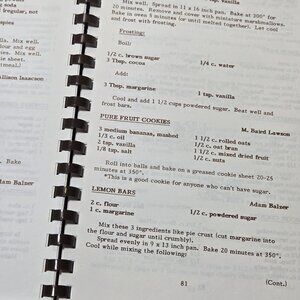 ng soda
irregular, not
opies
. Mix well.
flour and egg
Mix well.
e sheet.
llison Isaacson
. Bake
Adam Balzer
tsp. vanilla
Mix well. Spread in 11 x 16 inch pan. Bake at 200° for
20 minutes. Remove and cover with miniature marshmallows.
Bake in oven 5 minutes (or until melted together). Let cool
and frost with frosting.
Frosting:
Boil:
1/2 c. brown sugar
3 Tbsp. cocoa
1/4 c. water
Add:
3 Tbsp. margarine
1 tsp. vanilla
Cool and add 1 1/2 cups powdered sugar. Beat well and
frost bars.
PURE FRUIT COOKIES
M. Baird Lawson
3 medium bananas, mashed
1/3 c. oil
2 tsp. vanilla
1/8 tsp. salt
1 1/2 c. rolled oats
1/2 c. oat bran
1 1/2 c. mixed dried fruit
1/2 c. nuts
Roll into balls and bake on a greased cookie sheet 20-25
minutes at 350°.
*This is a good cookie for anyone who can't have sugar.
LEMON BARS
Adam Balzer
2 c. flour
1 c. margarine
1/2 c. powdered sugar
Mix these 3 ingredients like pie crust (cut margarine into
the flour and sugar until crumbly).
Spread evenly in 9 x 13 inch pan. Bake 20 minutes at 350°.
Cool while mixing the following:
81
(Cont.)